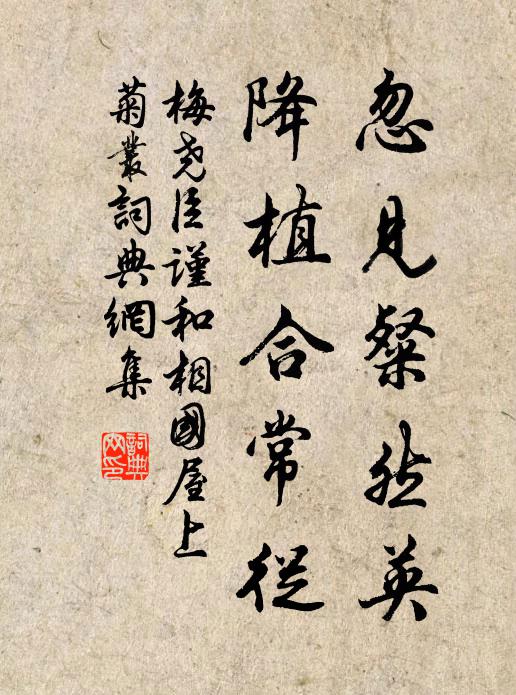 忽見粲然英
降植合常從
梅堯臣謹和相國屋上
菊叢詞典網集
詞典
网印